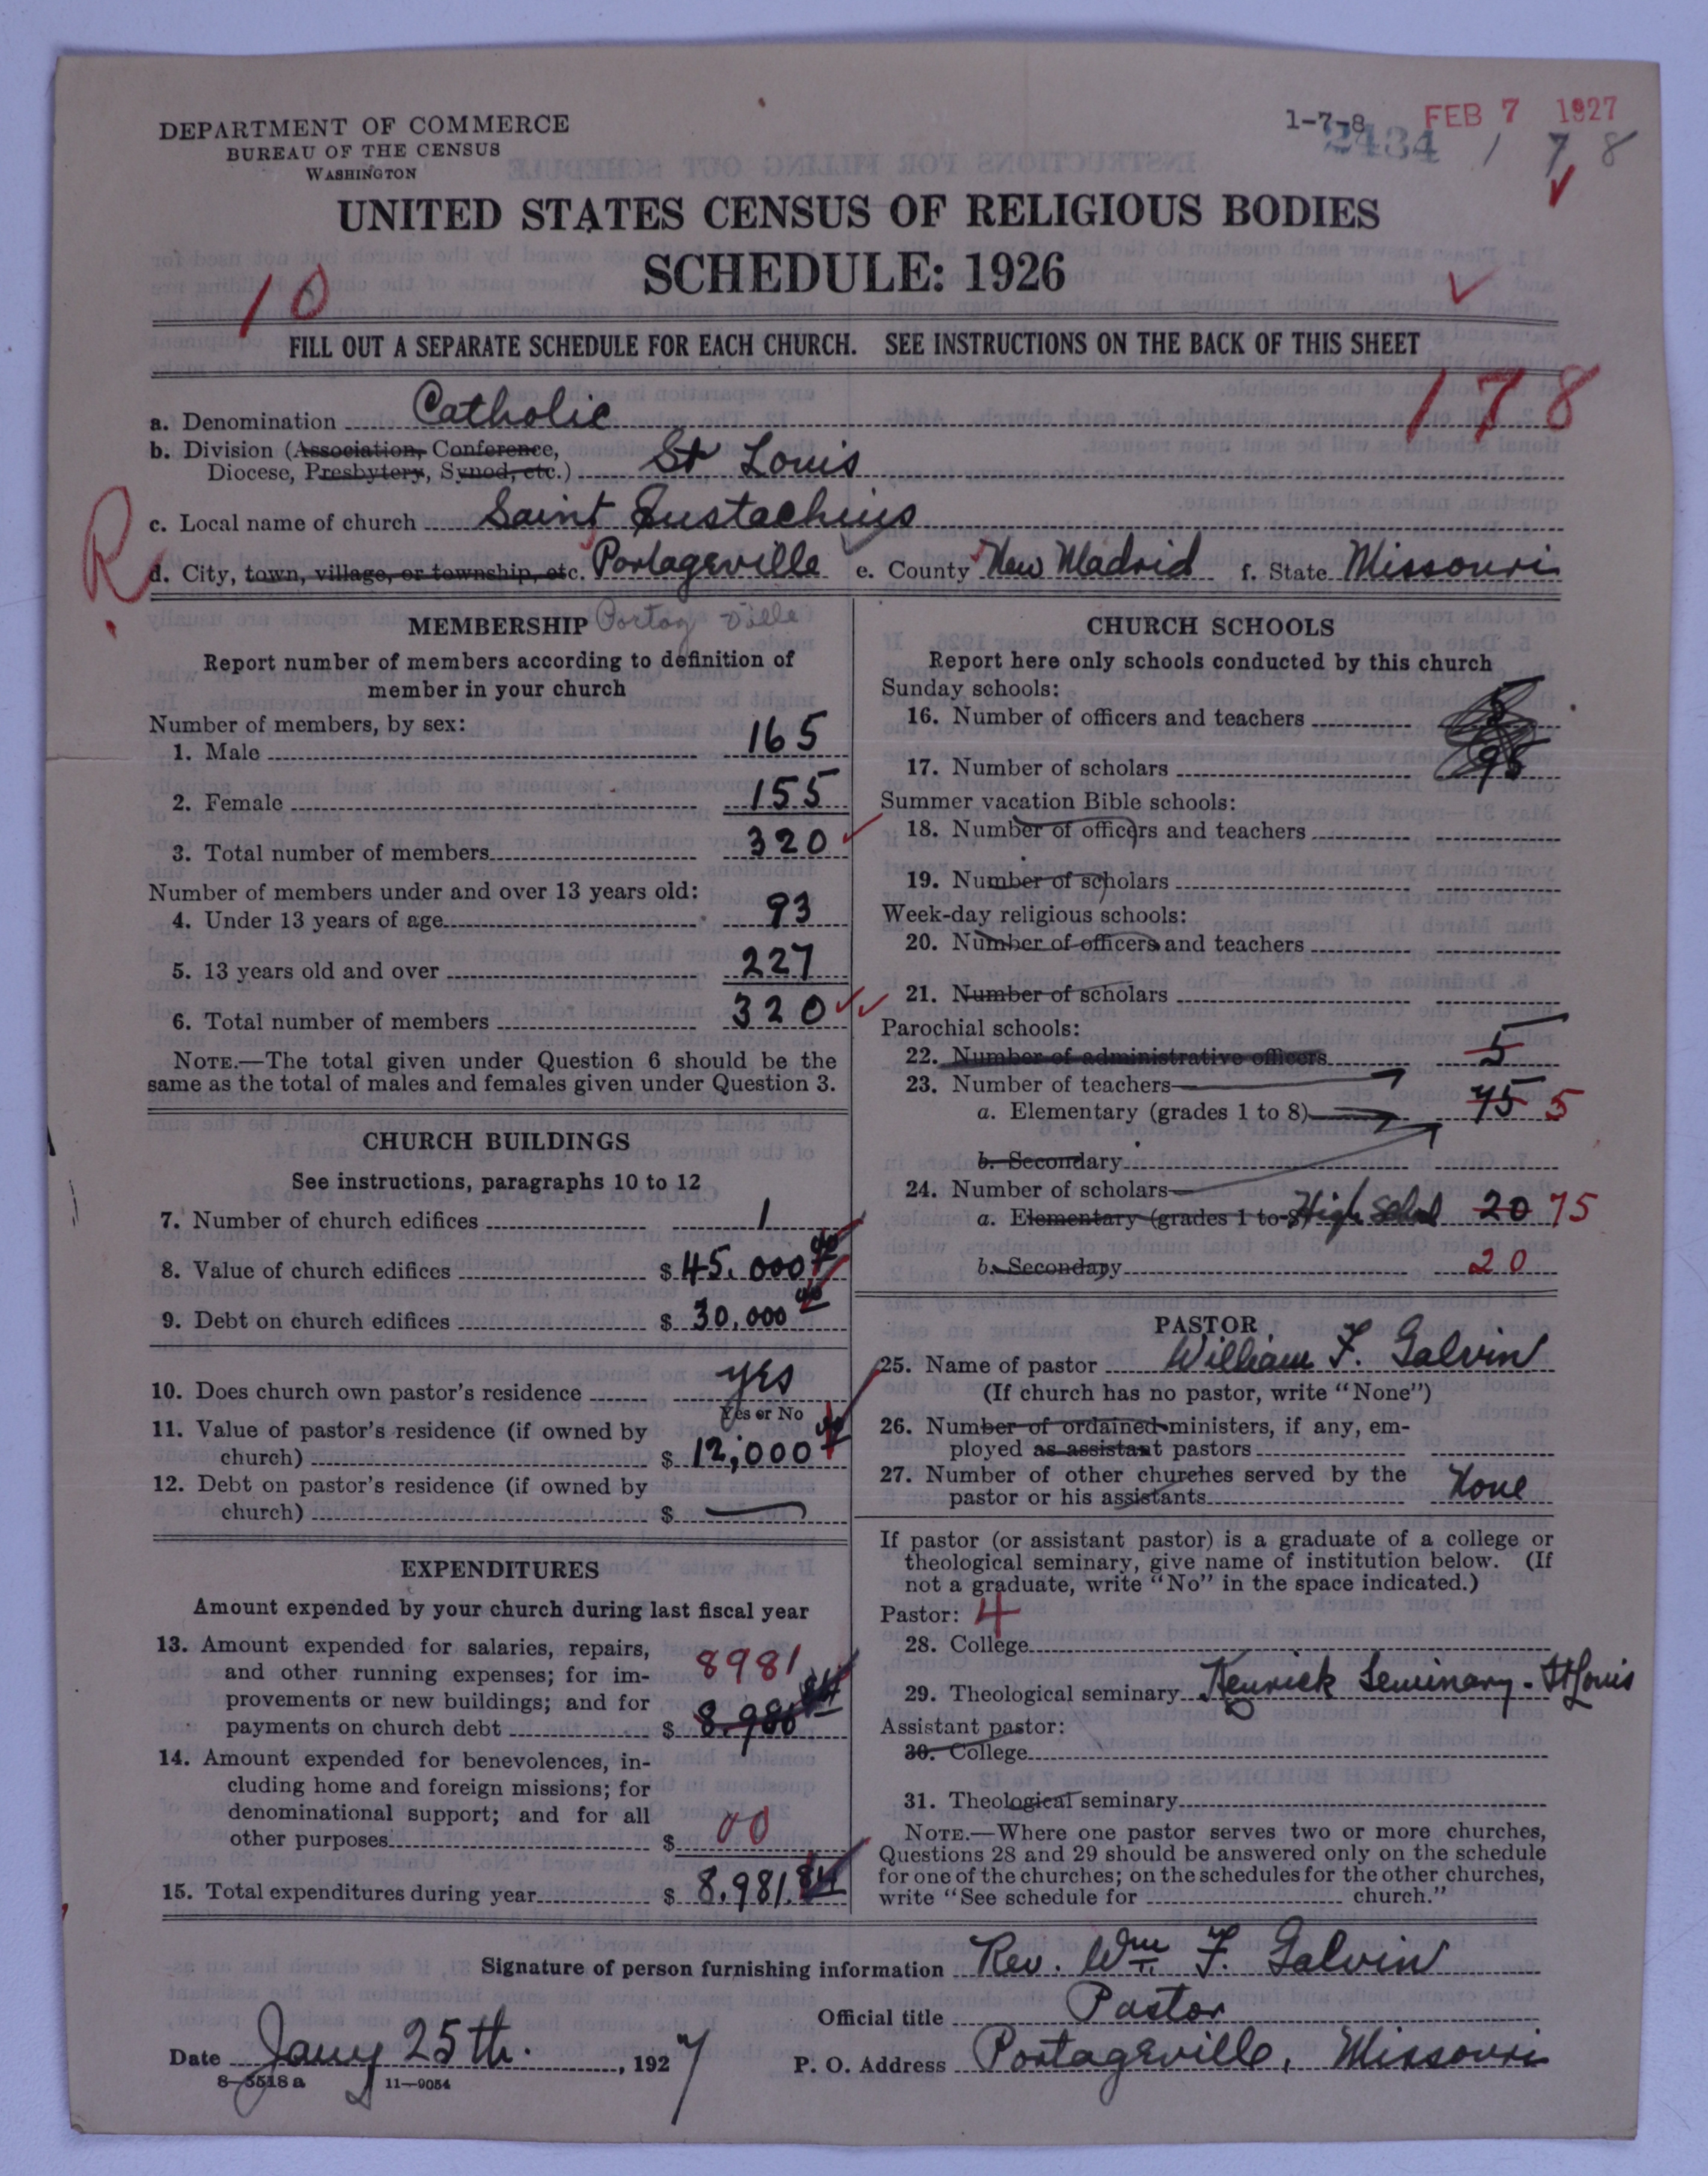 DEPARTMENT OF COMMERCE
BUREAU OF THE CENSUS
WASHINGTON
1-7-8
FEB 7 1927
2434 1 7 8
UNITED STATES CENSUS OF RELIGIOUS BODIES
SCHEDULE: 1926
10
FILL OUT A SEPARATE SCHEDULE FOR EACH CHURCH. SEE INSTRUCTIONS ON THE BACK OF THIS SHEET
178
a. Denomination Catholic
b. Division (Association, Conference,
Diocese, Presbytery, Synod, etc.) St Louis
c. Local name of church Saint Eustachius
R
d. City, town, village, or township, etc. Portageville e. County New Madrid f. State Missouri
MEMBERSHIP Portag ville
Report number of members according to definition of
member in your church
Number of members, by sex:
1. Male 165
2. Female 155
3. Total number of members 320
Number of members under and over 13 years old:
4. Under 13 years of age 93
5. 13 years old and over 227
6. Total number of members 320
NOTE.—The total given under Question 6 should be the
same as the total of males and females given under Question 3.
CHURCH BUILDINGS
See instructions, paragraphs 10 to 12
7. Number of church edifices 1
8. Value of church edifices $ 45,000
9. Debt on church edifices $ 30,000
10. Does church own pastor's residence yes
Yes or No
11. Value of pastor's residence (if owned by
church) $ 12,000
12. Debt on pastor's residence (if owned by
church) $ —
EXPENDITURES
Amount expended by your church during last fiscal year
13. Amount expended for salaries, repairs,
and other running expenses; for im-
provements or new buildings; and for
payments on church debt $ 8981
14. Amount expended for benevolences, in-
cluding home and foreign missions; for
denominational support; and for all
other purposes $ 00
15. Total expenditures during year $ 8,981.84
CHURCH SCHOOLS
Report here only schools conducted by this church
Sunday schools:
16. Number of officers and teachers
17. Number of scholars 95
Summer vacation Bible schools:
18. Number of officers and teachers
19. Number of scholars
Week-day religious schools:
20. Number of officers and teachers
21. Number of scholars
Parochial schools:
22. Number of administrative officers 5
23. Number of teachers
a. Elementary (grades 1 to 8) 75 5
b. Secondary
24. Number of scholars
a. Elementary (grades 1 to 8) High School 20 75
b. Secondary 20
PASTOR
25. Name of pastor William F. Galvin
(If church has no pastor, write "None")
26. Number of ordained ministers, if any, em-
ployed as assistant pastors
27. Number of other churches served by the
pastor or his assistants None
If pastor (or assistant pastor) is a graduate of a college or
theological seminary, give name of institution below. (If
not a graduate, write "No" in the space indicated.)
Pastor: 4
28. College
29. Theological seminary Kenrick Seminary - St Louis
Assistant pastor:
30. College
31. Theological seminary
NOTE.—Where one pastor serves two or more churches,
Questions 28 and 29 should be answered only on the schedule
for one of the churches; on the schedules for the other churches,
write "See schedule for church."
Signature of person furnishing information Rev. Wm F. Galvin
Official title Pastor
Date Jany 25th. , 1927
P. O. Address Portageville, Missouri
8—5518 a 11—9054